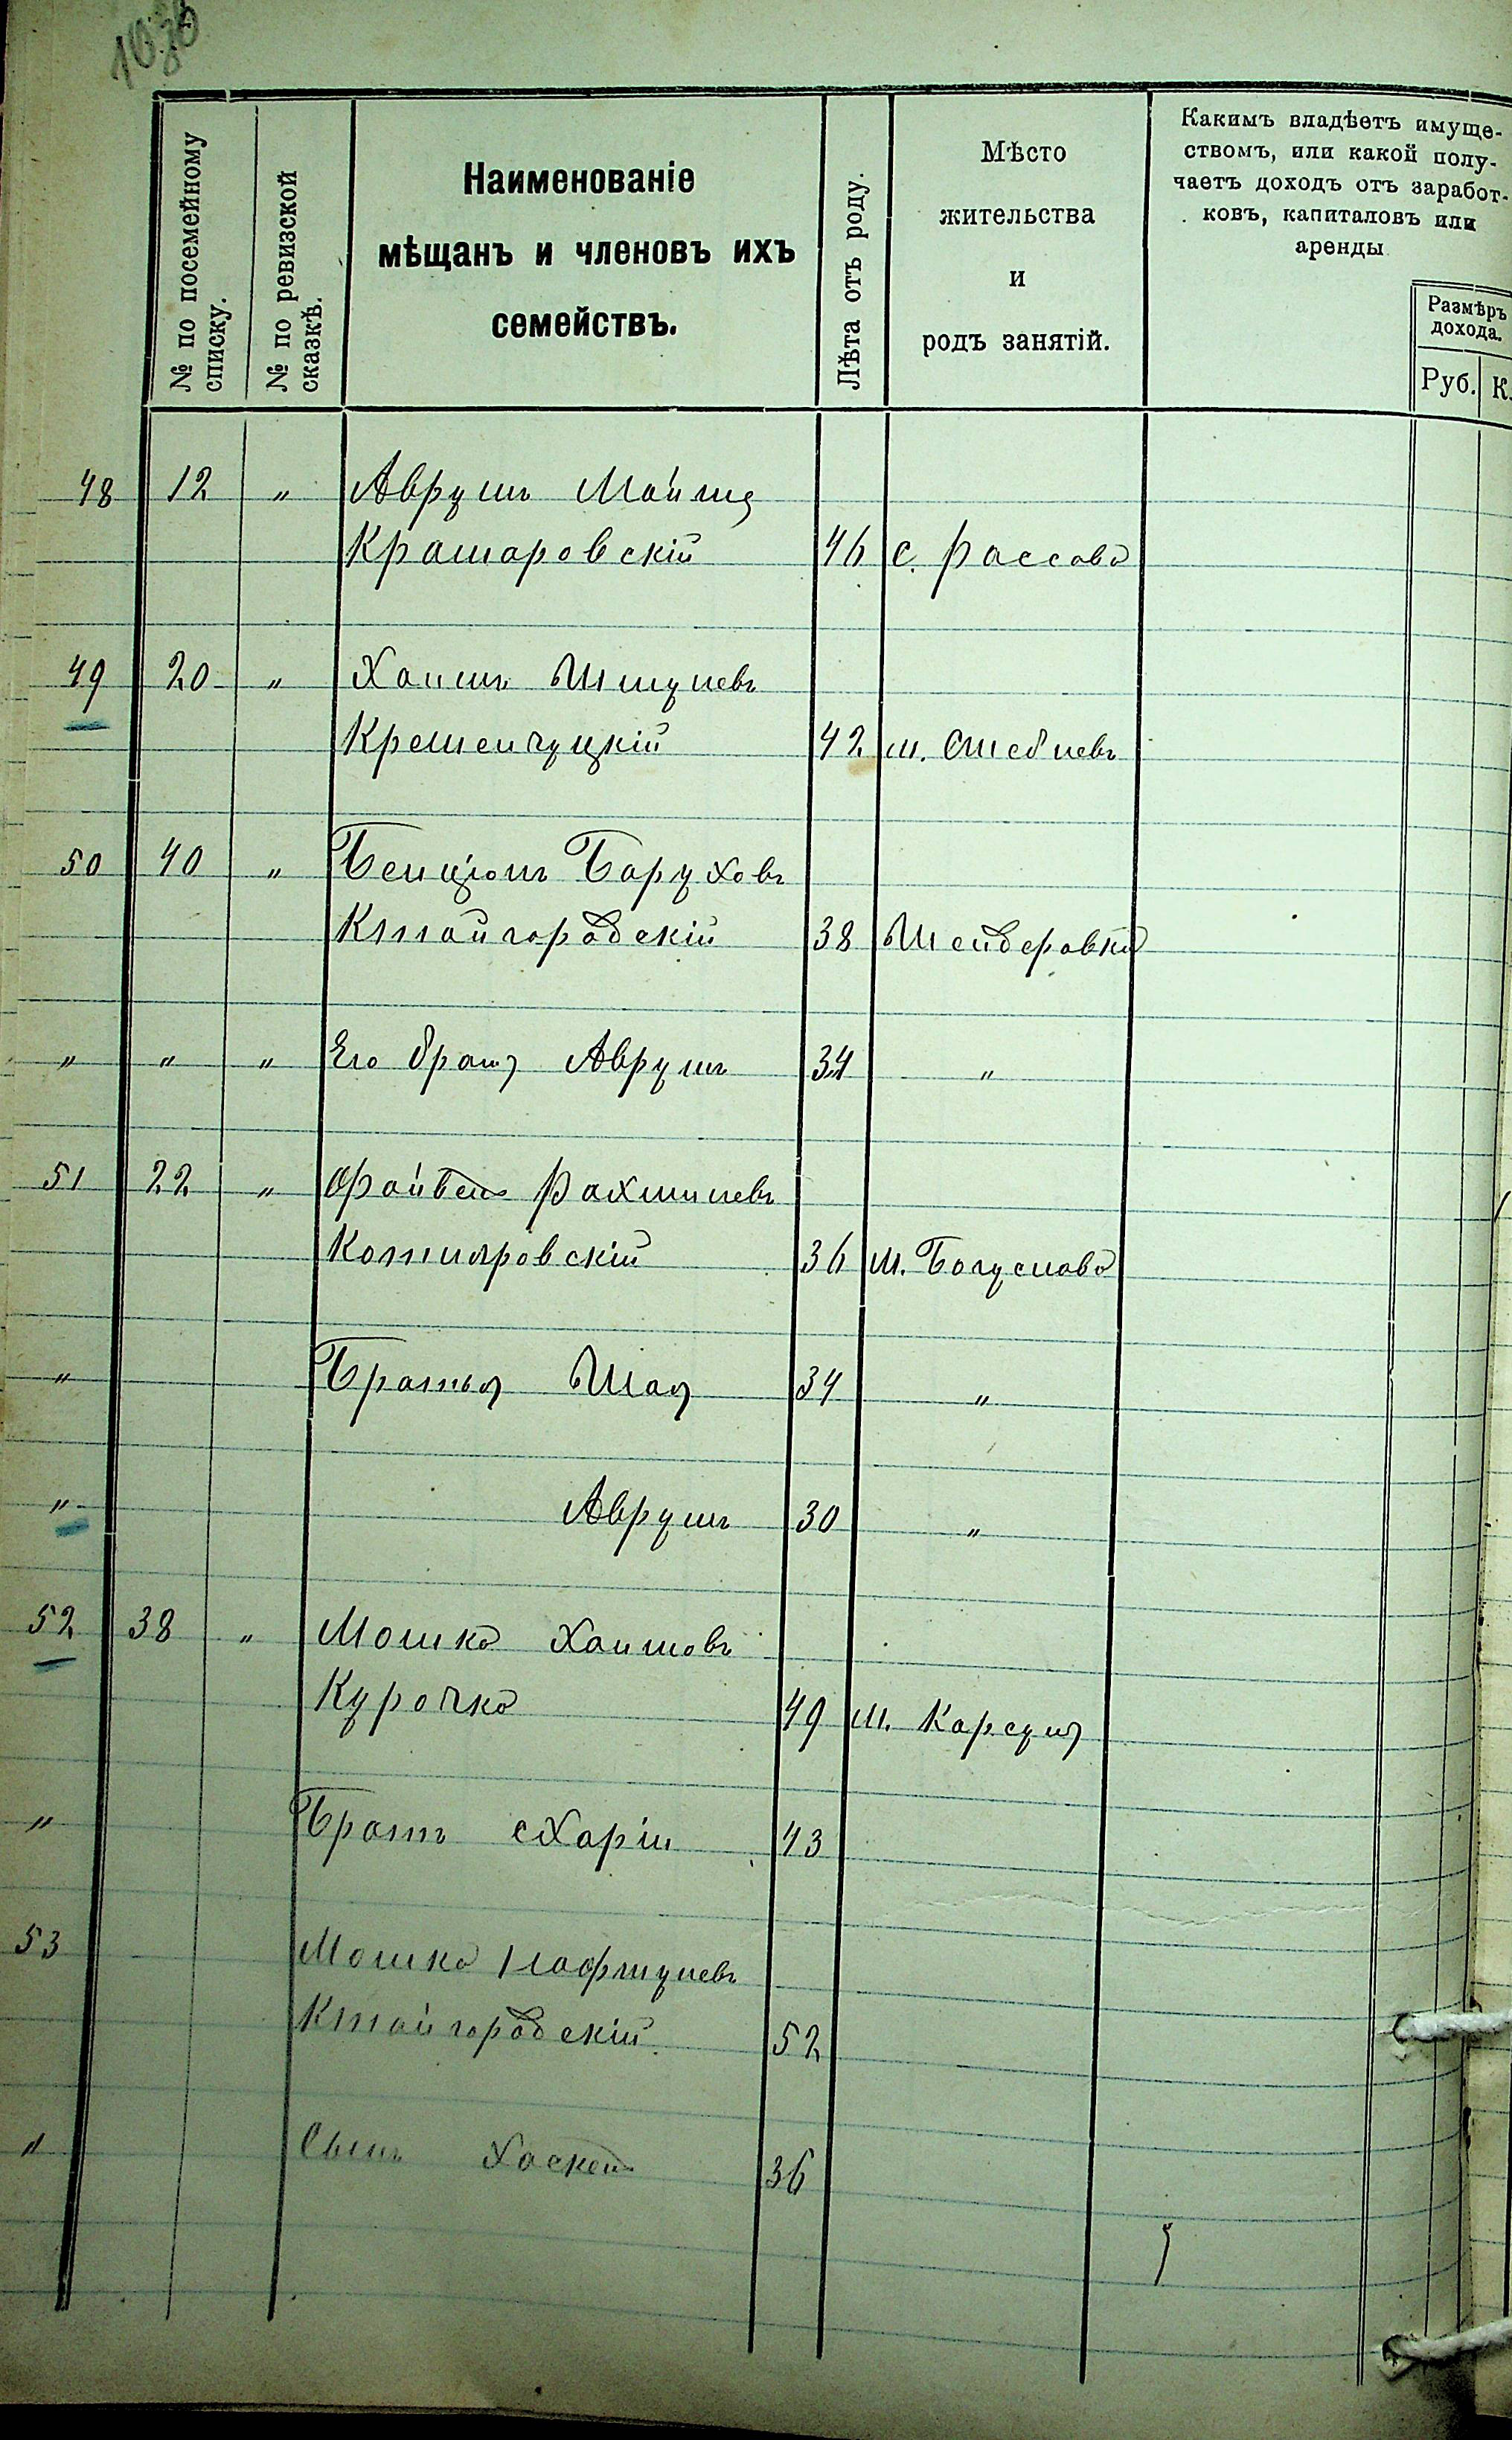 № по посемейному списку.
№ по ревизской сказкѣ.
Наименованіе
мѣщанъ и членовъ ихъ
семействъ.
Лѣта отъ роду.
Мѣсто
жительства
и
родъ занятій.
Какимъ владѣетъ имуще-
ствомъ, или какой полу-
чаетъ доходъ отъ заработ-
ковъ, капиталовъ или
аренды
Размѣръ
дохода.
Руб. К.
48 12 „ Аврумъ
Крамаровскій 46 с. Рассава
49 20 „ Хаимъ Шмулевъ
Кременчуцкій 42 м. Стеблевъ
50 40 „ Бенціонъ Баруховъ
Китайгородскій 38 Шендеровка
„ „ „ Его братъ Аврумъ 34 „
51 22 „ Файвель Рахмилевъ
Котляровскій 36 м. Богуслава
„ Братья Шая 34 „
„ Аврумъ 30 „
52 38 „ Мошко Хаимовъ
Курочка 49 м. Карсунь
„ Братъ 43
53 Мошко Нафтулевъ
Китайгородскій 52
„ Сынъ Хаскель 36